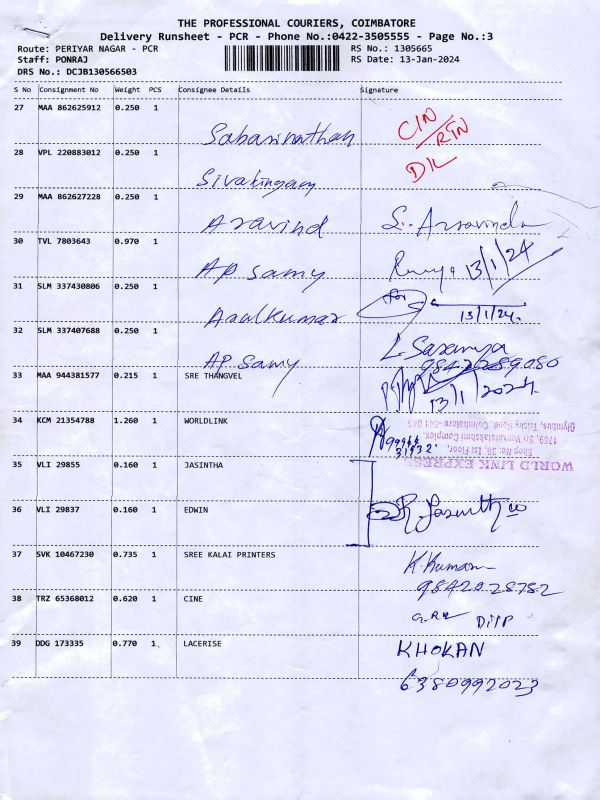 THE PROFESSIONAL COURIERS, COIMBATORE
Delivery Runsheet - PCR - Phone No.:0422-3505555 - Page No.:3
Route: PERIYAR NAGAR - PCR RS No.: 1305665
Staff: PONRAJ RS Date: 13-Jan-2024
DRS No.: DCJB130566503
S No Consignment No Weight PCS Consignee Details Signature
27 MAA 862625912 0.250 1
Sabarinathan CIN/RTN
28 VPL 220883012 0.250 1 D/L
Sivalingam
29 MAA 862627228 0.250 1
Aravind S. Aravind
30 TVL 7803643 0.970 1
AP samy 13/1/24
31 SLM 337430806 0.250 1 for
Aaalkumar 13/1/24.
32 SLM 337407688 0.250 1 L. Saranya
AP samy 9842289080
33 MAA 944381577 0.215 1 SRE THANGVEL 13/1/2024
34 KCM 21354788 1.260 1 WORLDLINK
WORLD LINK EXPRESS
Shop No: 38, 1st Floor,
1769, Sri Venkatalakshmi Complex,
Olymbus, Trichy Road, Coimbatore-641 045
35 VLI 29855 0.160 1 JASINTHA
36 VLI 29837 0.160 1 EDWIN
37 SVK 10467230 0.735 1 SREE KALAI PRINTERS K. Kumar
9842028752
38 TRZ 65368012 0.620 1 CINE
39 DDG 173335 0.770 1 LACERISE KHOKAN
6380992023